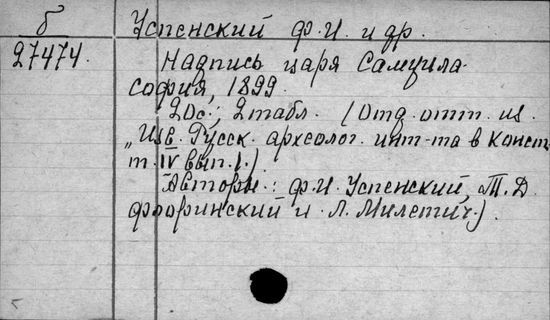 б
27474.
Успенский Ф.И. и др.
Надпись царя Самуила
София, 1899.
20с.; 2 табл. (Отд. отт. из
„Изв. Русск. археолог. инт-та в Конст.
т. IV вып. 1.)
(Авторы: Ф.И. Успенский, Т.Д.
Флоринский и Л. Милетич.)